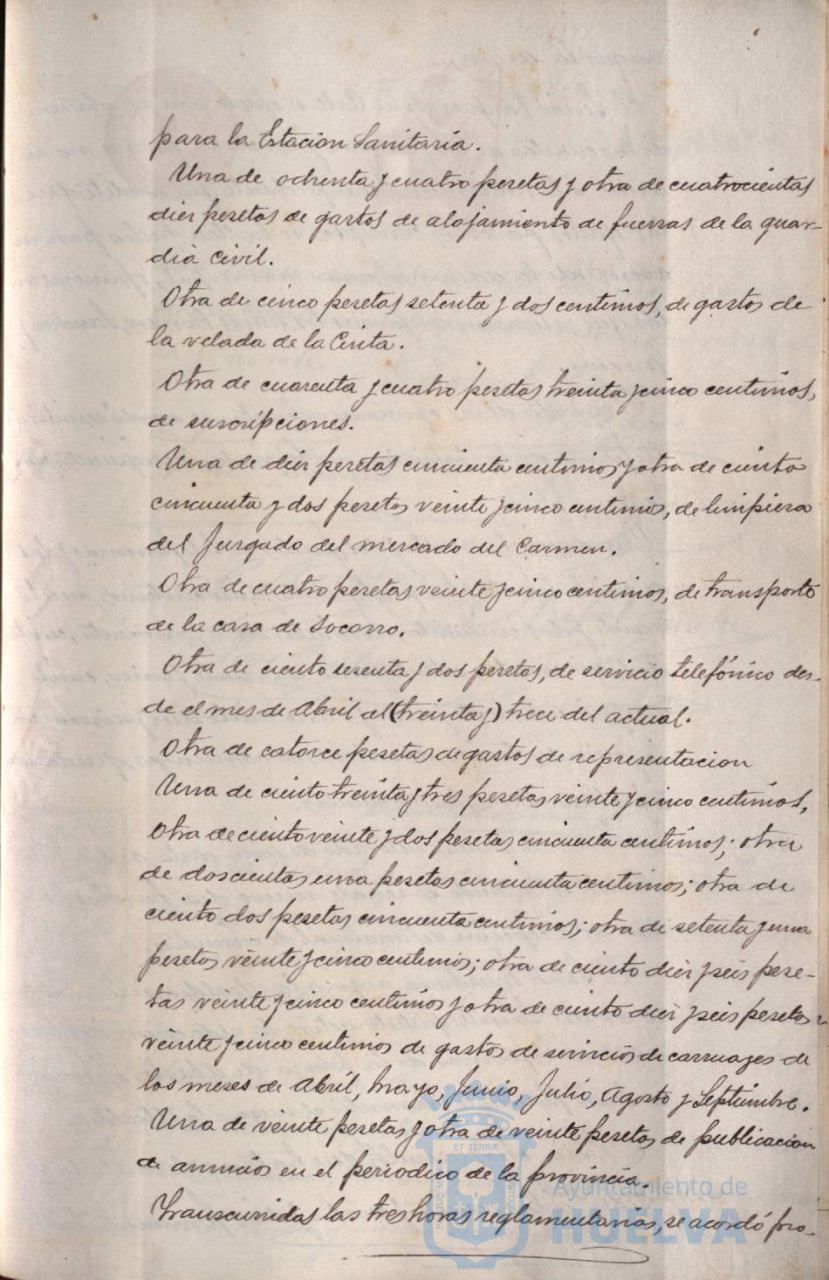 para la Estacion Sanitaria.
Una de ochenta y cuatro pesetas y otra de cuatrocientas
diez pesetas de gastos de alojamiento de fuerzas de la guar-
dia civil.
Otra de cinco pesetas setenta y dos centimos, de gastos de
la velada de la Cinta.
Otra de cuarenta y cuatro pesetas treinta y cinco centimos,
de suscripciones.
Una de diez pesetas cincuenta centimos y otra de ciento
cincuenta y dos pesetas veinte y cinco centimos, de limpieza
del Juzgado del mercado del Carmen.
Otra de cuatro pesetas veinte y cinco centimos, de transporte
de la casa de Socorro.
Otra de ciento sesenta y dos pesetas, de servicio telefónico des-
de el mes de Abril al (treinta y) trece del actual.
Otra de catorce pesetas de gastos de representacion
Una de ciento treinta y tres pesetas veinte y cinco centimos,
otra de ciento veinte y dos pesetas cincuenta centimos; otra
de doscientas una pesetas cincuenta centimos; otra de
ciento dos pesetas cincuenta centimos; otra de setenta y una
pesetas veinte y cinco centimos; otra de ciento diez y seis pese-
tas veinte y cinco centimos y otra de ciento diez y seis pesetas
veinte y cinco centimos de gastos de servicios de carruages de
los meses de Abril, Mayo, Junio, Julio, Agosto y Septiembre.
Una de veinte pesetas y otra de veinte pesetas de publicacion
de anuncios en el periodico de la provincia.
Transcurridas las tres horas reglamentarias, se acordó pro-
ET TERRÆ
Ayuntamiento de
HUELVA